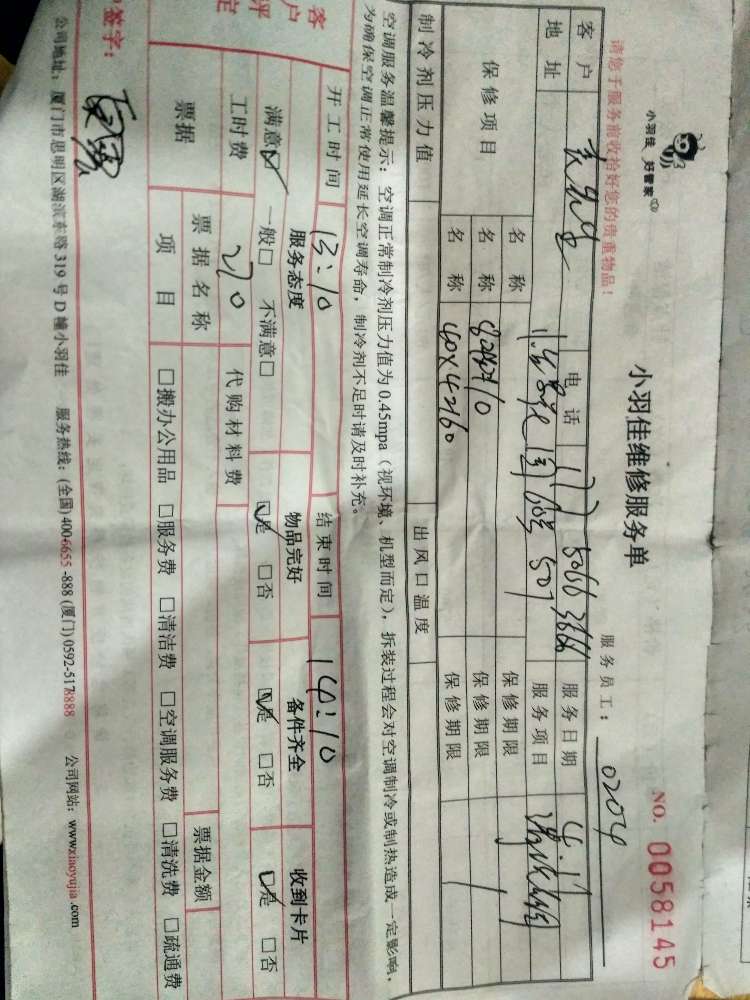 小羽佳 好管家
小羽佳维修服务单
NO. 0058145
请您于服务前收拾好您的贵重物品！
服务员工： 0204
客户 电话 177 5066 3666 服务日期 4.17
地址 507 服务项目
保修项目 名称 保修期限
名称 保修期限
名称 保修期限
制冷剂压力值 出风口温度
空调服务温馨提示：空调正常制冷剂压力值为 0.45mpa（视环境、机型而定），拆装过程会对空调制冷或制热造成一定影响，
为确保空调正常使用延长空调寿命，制冷剂不足时请及时补充。
开工时间 13:10 结束时间 14:10
客户评定 服务态度 物品完好 备件齐全 收到卡片
满意☑ 一般□ 不满意□ ☑是 □否 ☑是 □否 ☑是 □否
工时费 270 代购材料费
票据 票据名称 票据金额
项目 □搬办公用品 □服务费 □清洁费 □空调服务费 □清洗费 □疏通费
签字：
公司地址：厦门市思明区湖滨东路 319 号 D 幢小羽佳 服务热线：(全国) 400-6655-888 (厦门) 0592-5178888 公司网站：www.xiaoyujia.com